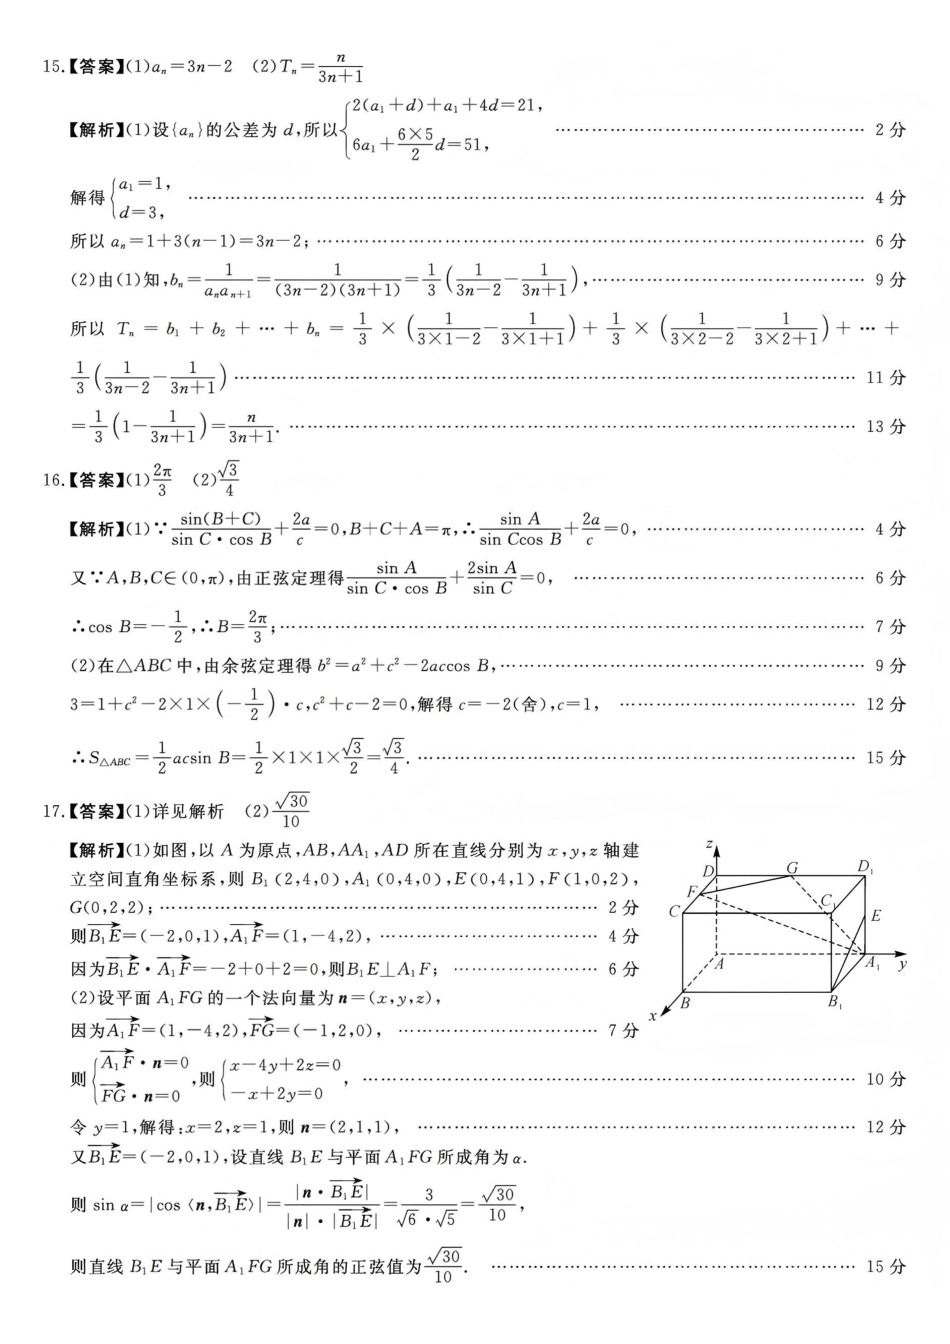 15.【答案】(1)aₙ=3n−2 (2)Tₙ=n/(3n+1)
【解析】(1)设{aₙ}的公差为 d,所以{2(a₁+d)+a₁+4d=21, 6a₁+(6×5)/2 d=51, …… 2分
解得{a₁=1, d=3, …… 4分
所以 aₙ=1+3(n−1)=3n−2; …… 6分
(2)由(1)知,bₙ=1/(aₙaₙ₊₁)=1/((3n−2)(3n+1))=1/3(1/(3n−2)−1/(3n+1)), …… 9分
所以 Tₙ=b₁+b₂+…+bₙ=1/3×(1/(3×1−2)−1/(3×1+1))+1/3×(1/(3×2−2)−1/(3×2+1))+…+
1/3(1/(3n−2)−1/(3n+1)) …… 11分
=1/3(1−1/(3n+1))=n/(3n+1). …… 13分
16.【答案】(1)2π/3 (2)√3/4
【解析】(1)∵sin(B+C)/(sin C·cos B)+2a/c=0,B+C+A=π,∴sin A/(sin Ccos B)+2a/c=0, …… 4分
又∵A,B,C∈(0,π),由正弦定理得sin A/(sin C·cos B)+2sin A/sin C=0, …… 6分
∴cos B=−1/2,∴B=2π/3; …… 7分
(2)在△ABC中,由余弦定理得 b²=a²+c²−2accos B, …… 9分
3=1+c²−2×1×(−1/2)·c,c²+c−2=0,解得 c=−2(舍),c=1, …… 12分
∴S△ABC=1/2acsin B=1/2×1×1×√3/2=√3/4. …… 15分
17.【答案】(1)详见解析 (2)√30/10
【解析】(1)如图,以 A 为原点,AB,AA₁,AD 所在直线分别为 x,y,z 轴建
立空间直角坐标系,则 B₁(2,4,0),A₁(0,4,0),E(0,4,1),F(1,0,2),
G(0,2,2); …… 2分
则B₁E→=(−2,0,1),A₁F→=(1,−4,2), …… 4分
因为B₁E→·A₁F→=−2+0+2=0,则B₁E⊥A₁F; …… 6分
(2)设平面 A₁FG 的一个法向量为 n=(x,y,z),
因为A₁F→=(1,−4,2),FG→=(−1,2,0), …… 7分
则{A₁F→·n=0 FG→·n=0,则{x−4y+2z=0 −x+2y=0, …… 10分
令 y=1,解得:x=2,z=1,则 n=(2,1,1), …… 12分
又B₁E→=(−2,0,1),设直线 B₁E 与平面 A₁FG 所成角为 α.
则 sin α=|cos〈n,B₁E→〉|=|n·B₁E→|/(|n|·|B₁E→|)=3/(√6·√5)=√30/10,
则直线 B₁E 与平面 A₁FG 所成角的正弦值为√30/10. …… 15分
z
D G D₁
F
C C₁ E
A A₁ y
B B₁
x